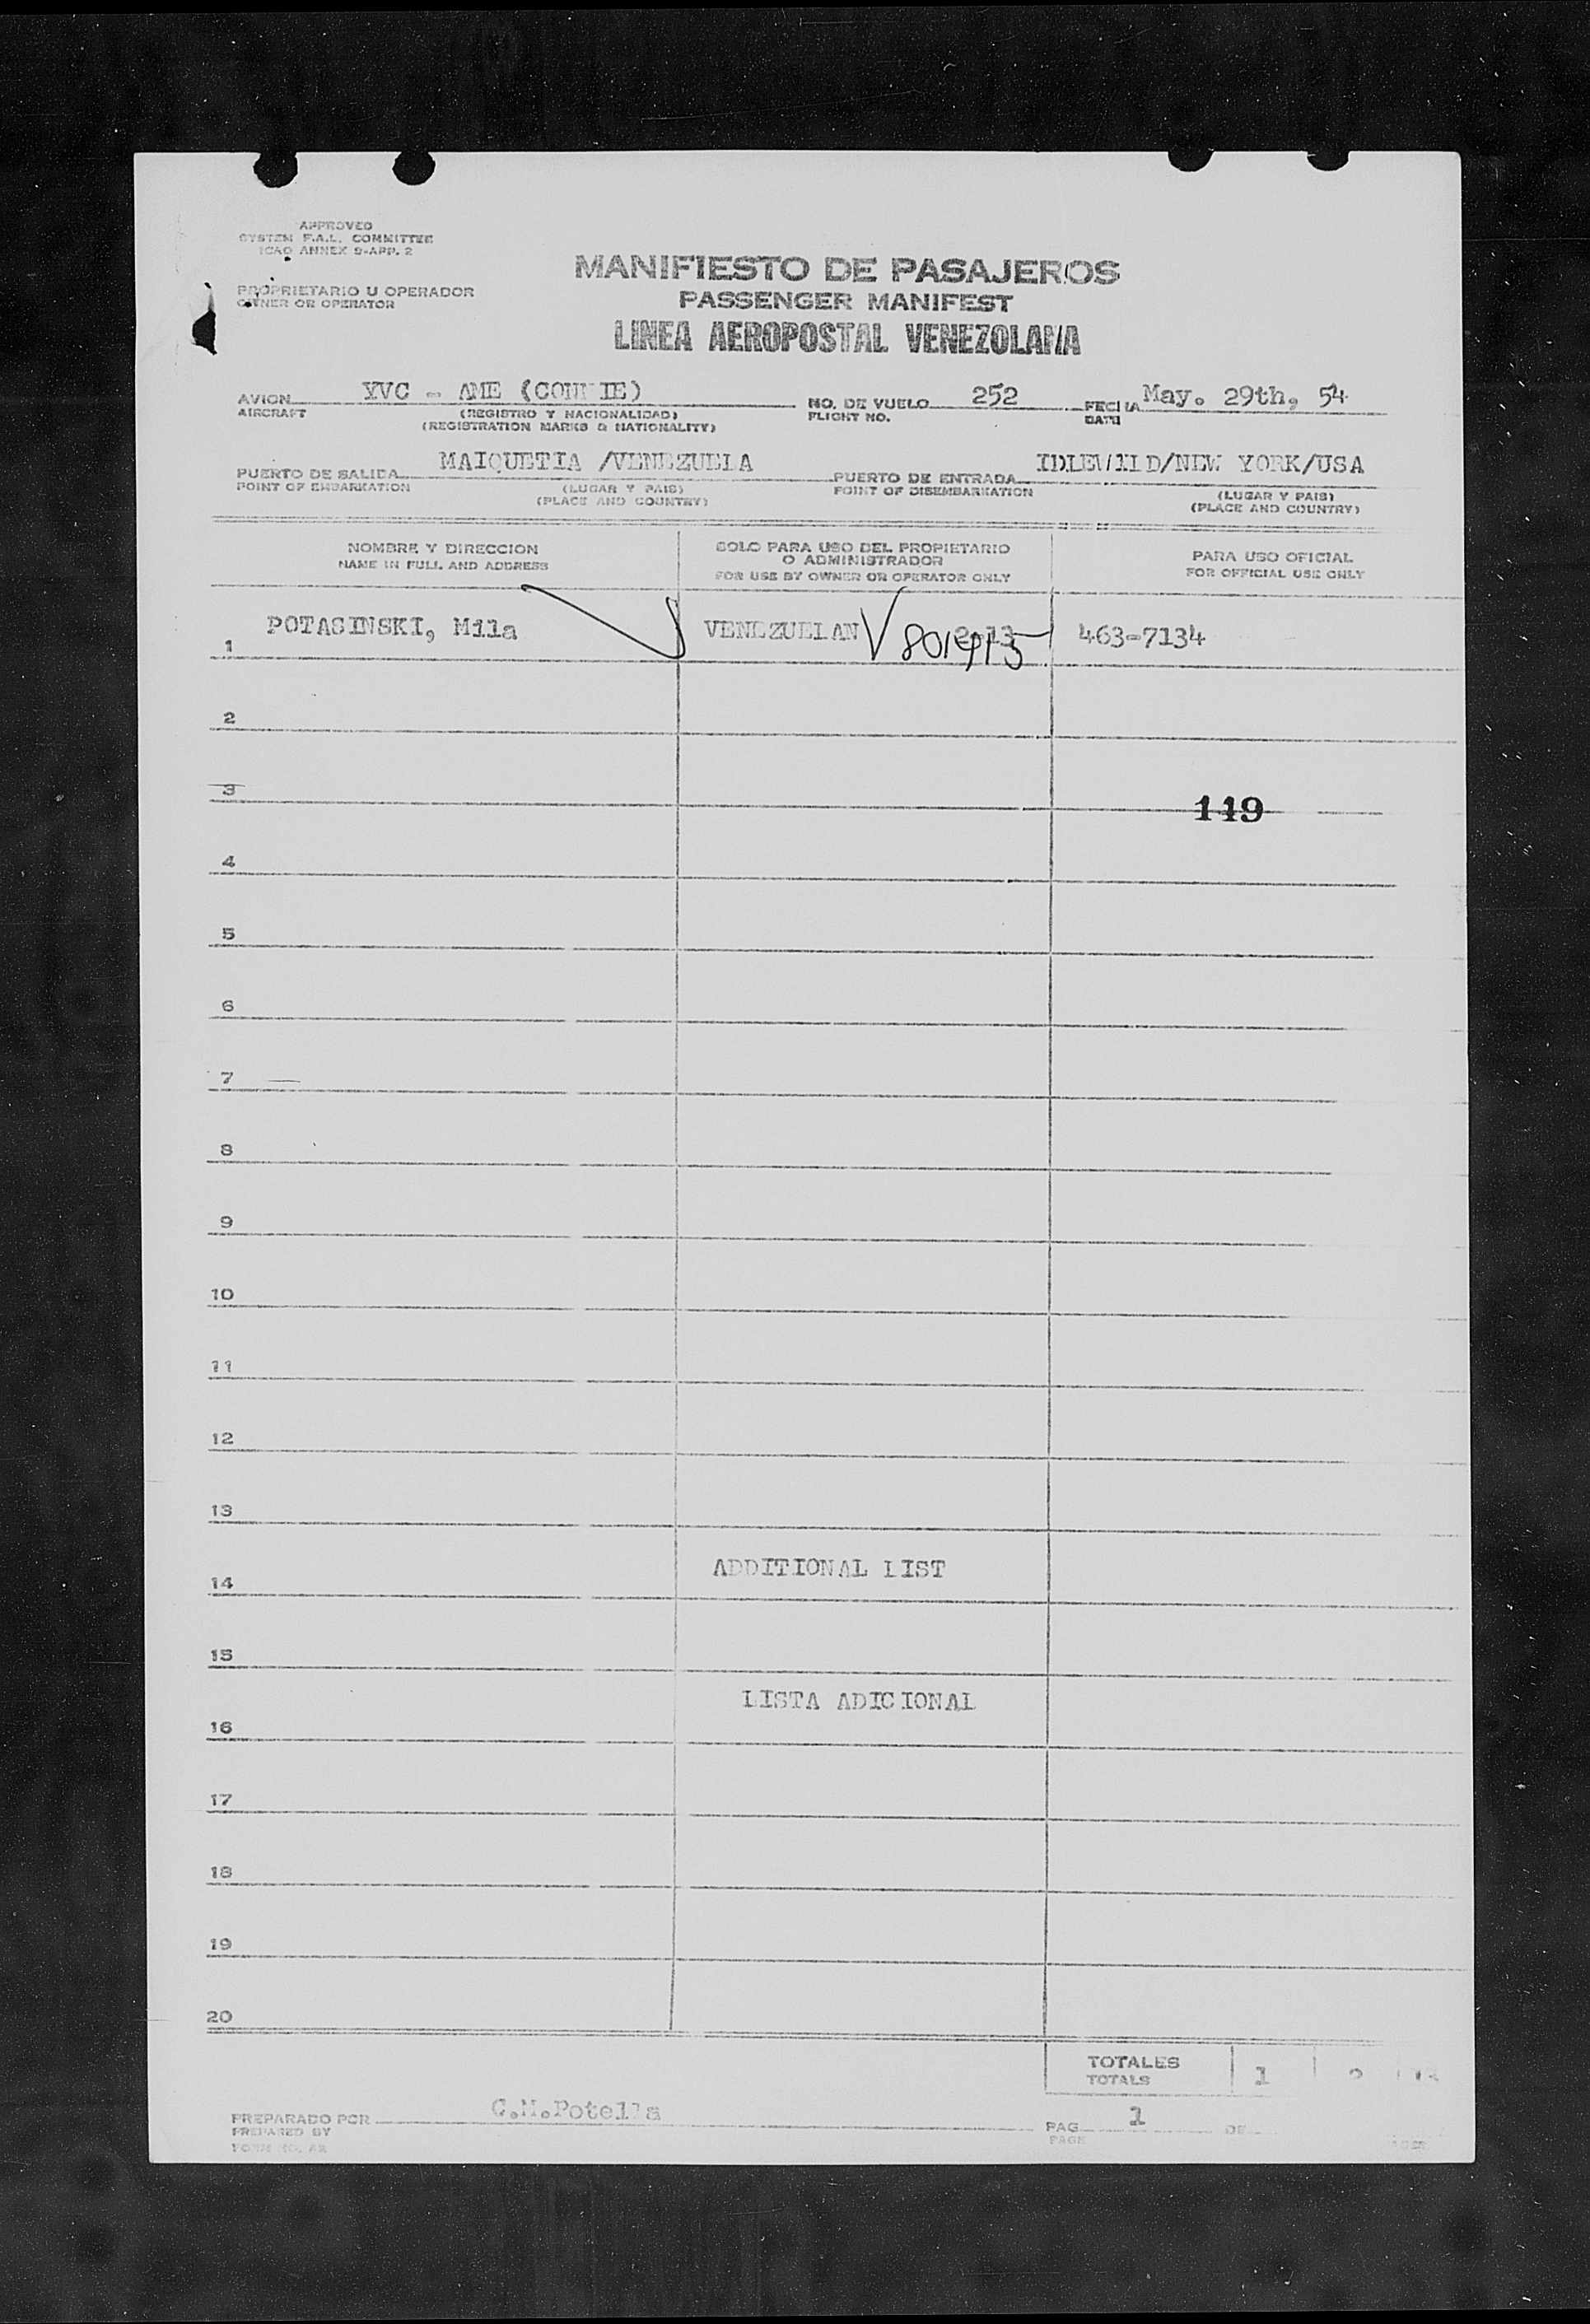 APPROVED
SYSTEM F.A.L. COMMITTEE
ICAO ANNEX 9-APP. 2
PROPRIETARIO U OPERADOR
OWNER OR OPERATOR
MANIFIESTO DE PASAJEROS
PASSENGER MANIFEST
LINEA AEROPOSTAL VENEZOLANA
AVION YVC - AME (CONNIE) NO. DE VUELO 252 FECHA May. 29th, 54
AIRCRAFT (REGISTRO Y NACIONALIDAD) FLIGHT NO. DATE
(REGISTRATION MARKS & NATIONALITY)
PUERTO DE SALIDA MAIQUETIA /VENEZUELA PUERTO DE ENTRADA IDLEWILD/NEW YORK/USA
POINT OF EMBARKATION (LUGAR Y PAIS) POINT OF DISEMBARKATION (LUGAR Y PAIS)
(PLACE AND COUNTRY) (PLACE AND COUNTRY)
NOMBRE Y DIRECCION SOLO PARA USO DEL PROPIETARIO O ADMINISTRADOR PARA USO OFICIAL
NAME IN FULL AND ADDRESS FOR USE BY OWNER OR OPERATOR ONLY FOR OFFICIAL USE ONLY
1 POTASINSKI, Mila VENEZUELAN 463-7134
2
3 149
4
5
6
7
8
9
10
11
12
13
14 ADDITIONAL LIST
15
16 LISTA ADICIONAL
17
18
19
20
TOTALES 1
TOTALS
PREPARADO POR C.M.Potella PAG 1 DE
PREPARED BY PAGE
FORM NO. AR